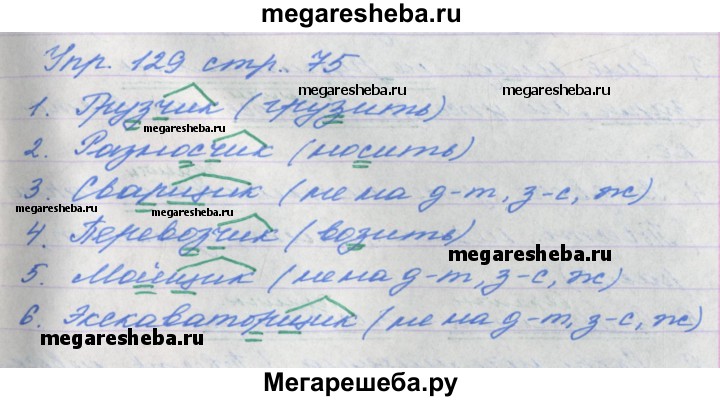 megaresheba.ru
Упр. 129 стр. 75
megaresheba.ru megaresheba.ru
1. Грузчик (грузить)
megaresheba.ru
2. Разносчик (носить)
3. Сварщик (не на д-т, з-с, ж)
megaresheba.ru megaresheba.ru
4. Перевозчик (возить)
megaresheba.ru
5. Мойщик (не на д-т, з-с, ж)
6. Экскаваторщик (не на д-т, з-с, ж)
megaresheba.ru
Мегарешеба.ру